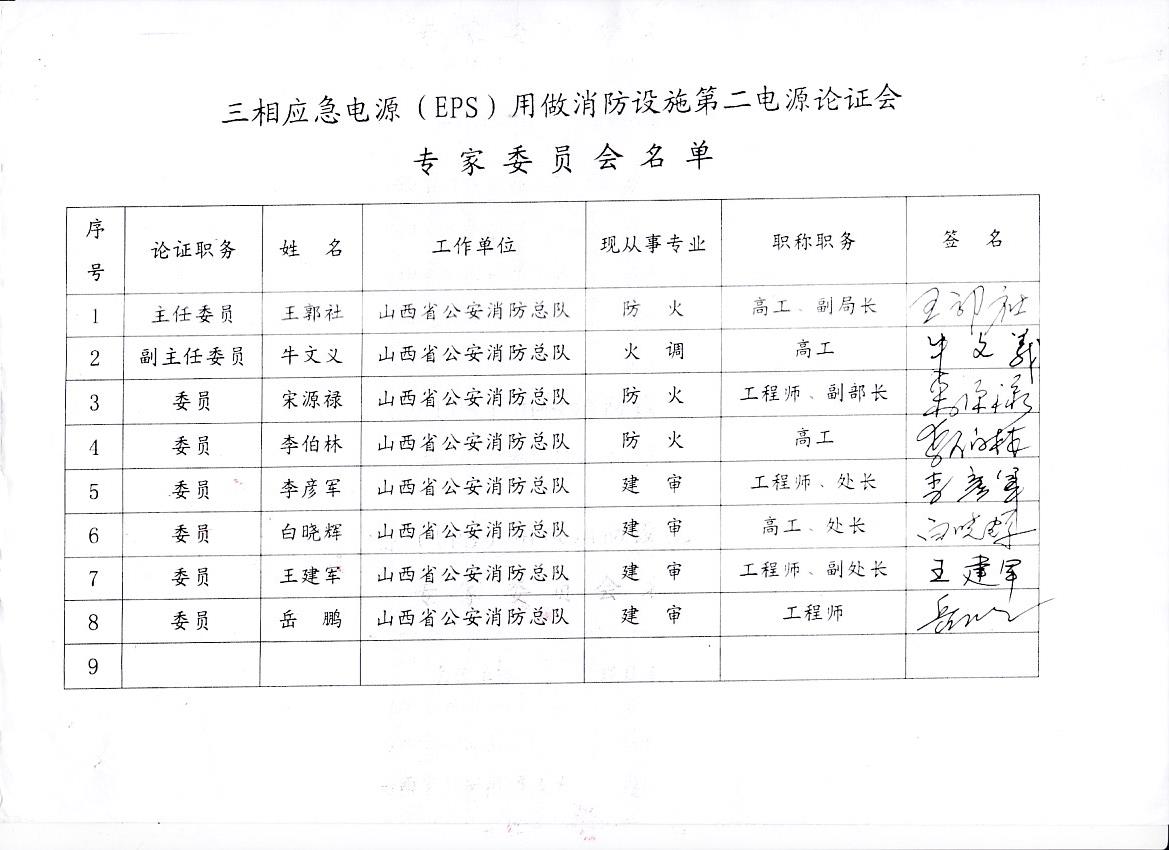 三相应急电源（EPS）用做消防设施第二电源论证会
专家委员会名单
序号 论证职务 姓 名 工作单位 现从事专业 职称职务 签 名
1 主任委员 王郭社 山西省公安消防总队 防 火 高工、副局长 王郭社
2 副主任委员 牛文义 山西省公安消防总队 火 调 高工 牛文義
3 委员 宋源禄 山西省公安消防总队 防 火 工程师、副部长 宋源禄
4 委员 李伯林 山西省公安消防总队 防 火 高工 李伯林
5 委员 李彦军 山西省公安消防总队 建 审 工程师、处长 李彦军
6 委员 白晓辉 山西省公安消防总队 建 审 高工、处长 白晓辉
7 委员 王建军 山西省公安消防总队 建 审 工程师、副处长 王建军
8 委员 岳 鹏 山西省公安消防总队 建 审 工程师 岳
9